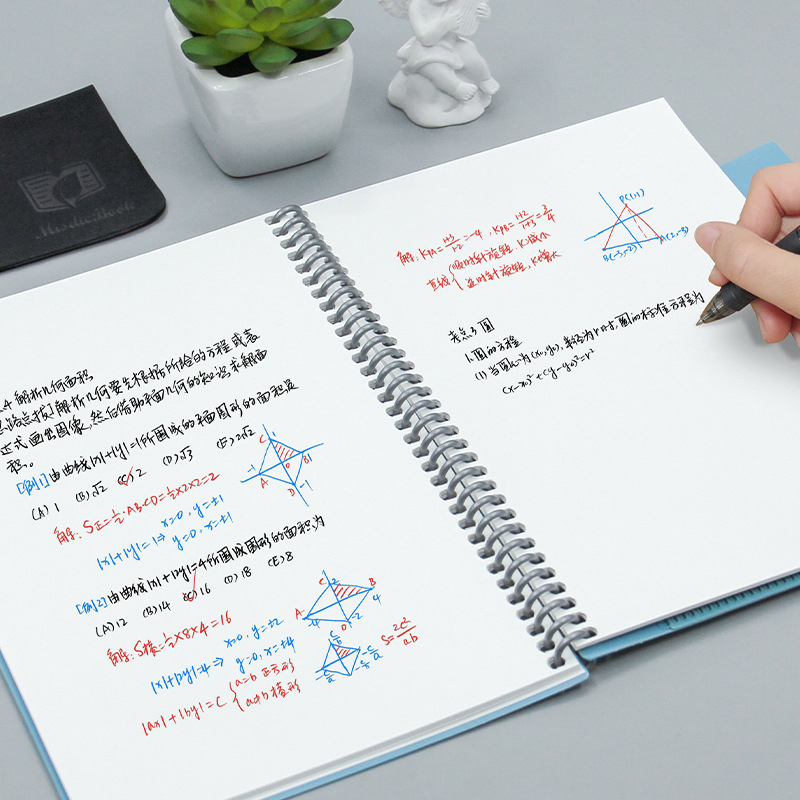 MusdicBook
2.4 解析几何面积
思路点拨]解析几何要先根据所给的方程或表
达式画出图像,然后借助平面几何的知识求解面
积。
[例1]由曲线|x|+|y|=1所围成的平面图形的面积是
(A) 1 (B) √2 (C) 2 (D) √3 (E) 2√2
解: S正=½·AB·CD=½×2×2=2
|x|+|y|=1⇒ x=0, y=±1
y=0, x=±1
C
-1
A
O
B
1
D
-1
[例2]由曲线|x|+|2y|=4所围成图形的面积为
(A) 12 (B) 14 (C) 16 (D) 18 (E) 8
解: S菱=½×8×4=16
|x|+|2y|=4⇒ x=0, y=±2
y=0, x=±4
C 2 B
A 4
-4
D -2
|ax|+|by|=C { a=b 正方形
a≠b 菱形
S=2c²/ab
解: KPA=(1+3)/(1-2)=-4, KPB=(1+2)/(1+3)=3/4
直线 { 顺时针旋转, K减小
逆时针旋转, K增大
P(1,1)
B(-3,-2)
A(2,-3)
考点3 圆
1.圆的方程
(1) 当圆心为(x₀,y₀), 半径为r时, 圆的标准方程为
(x-x₀)²+(y-y₀)²=r²